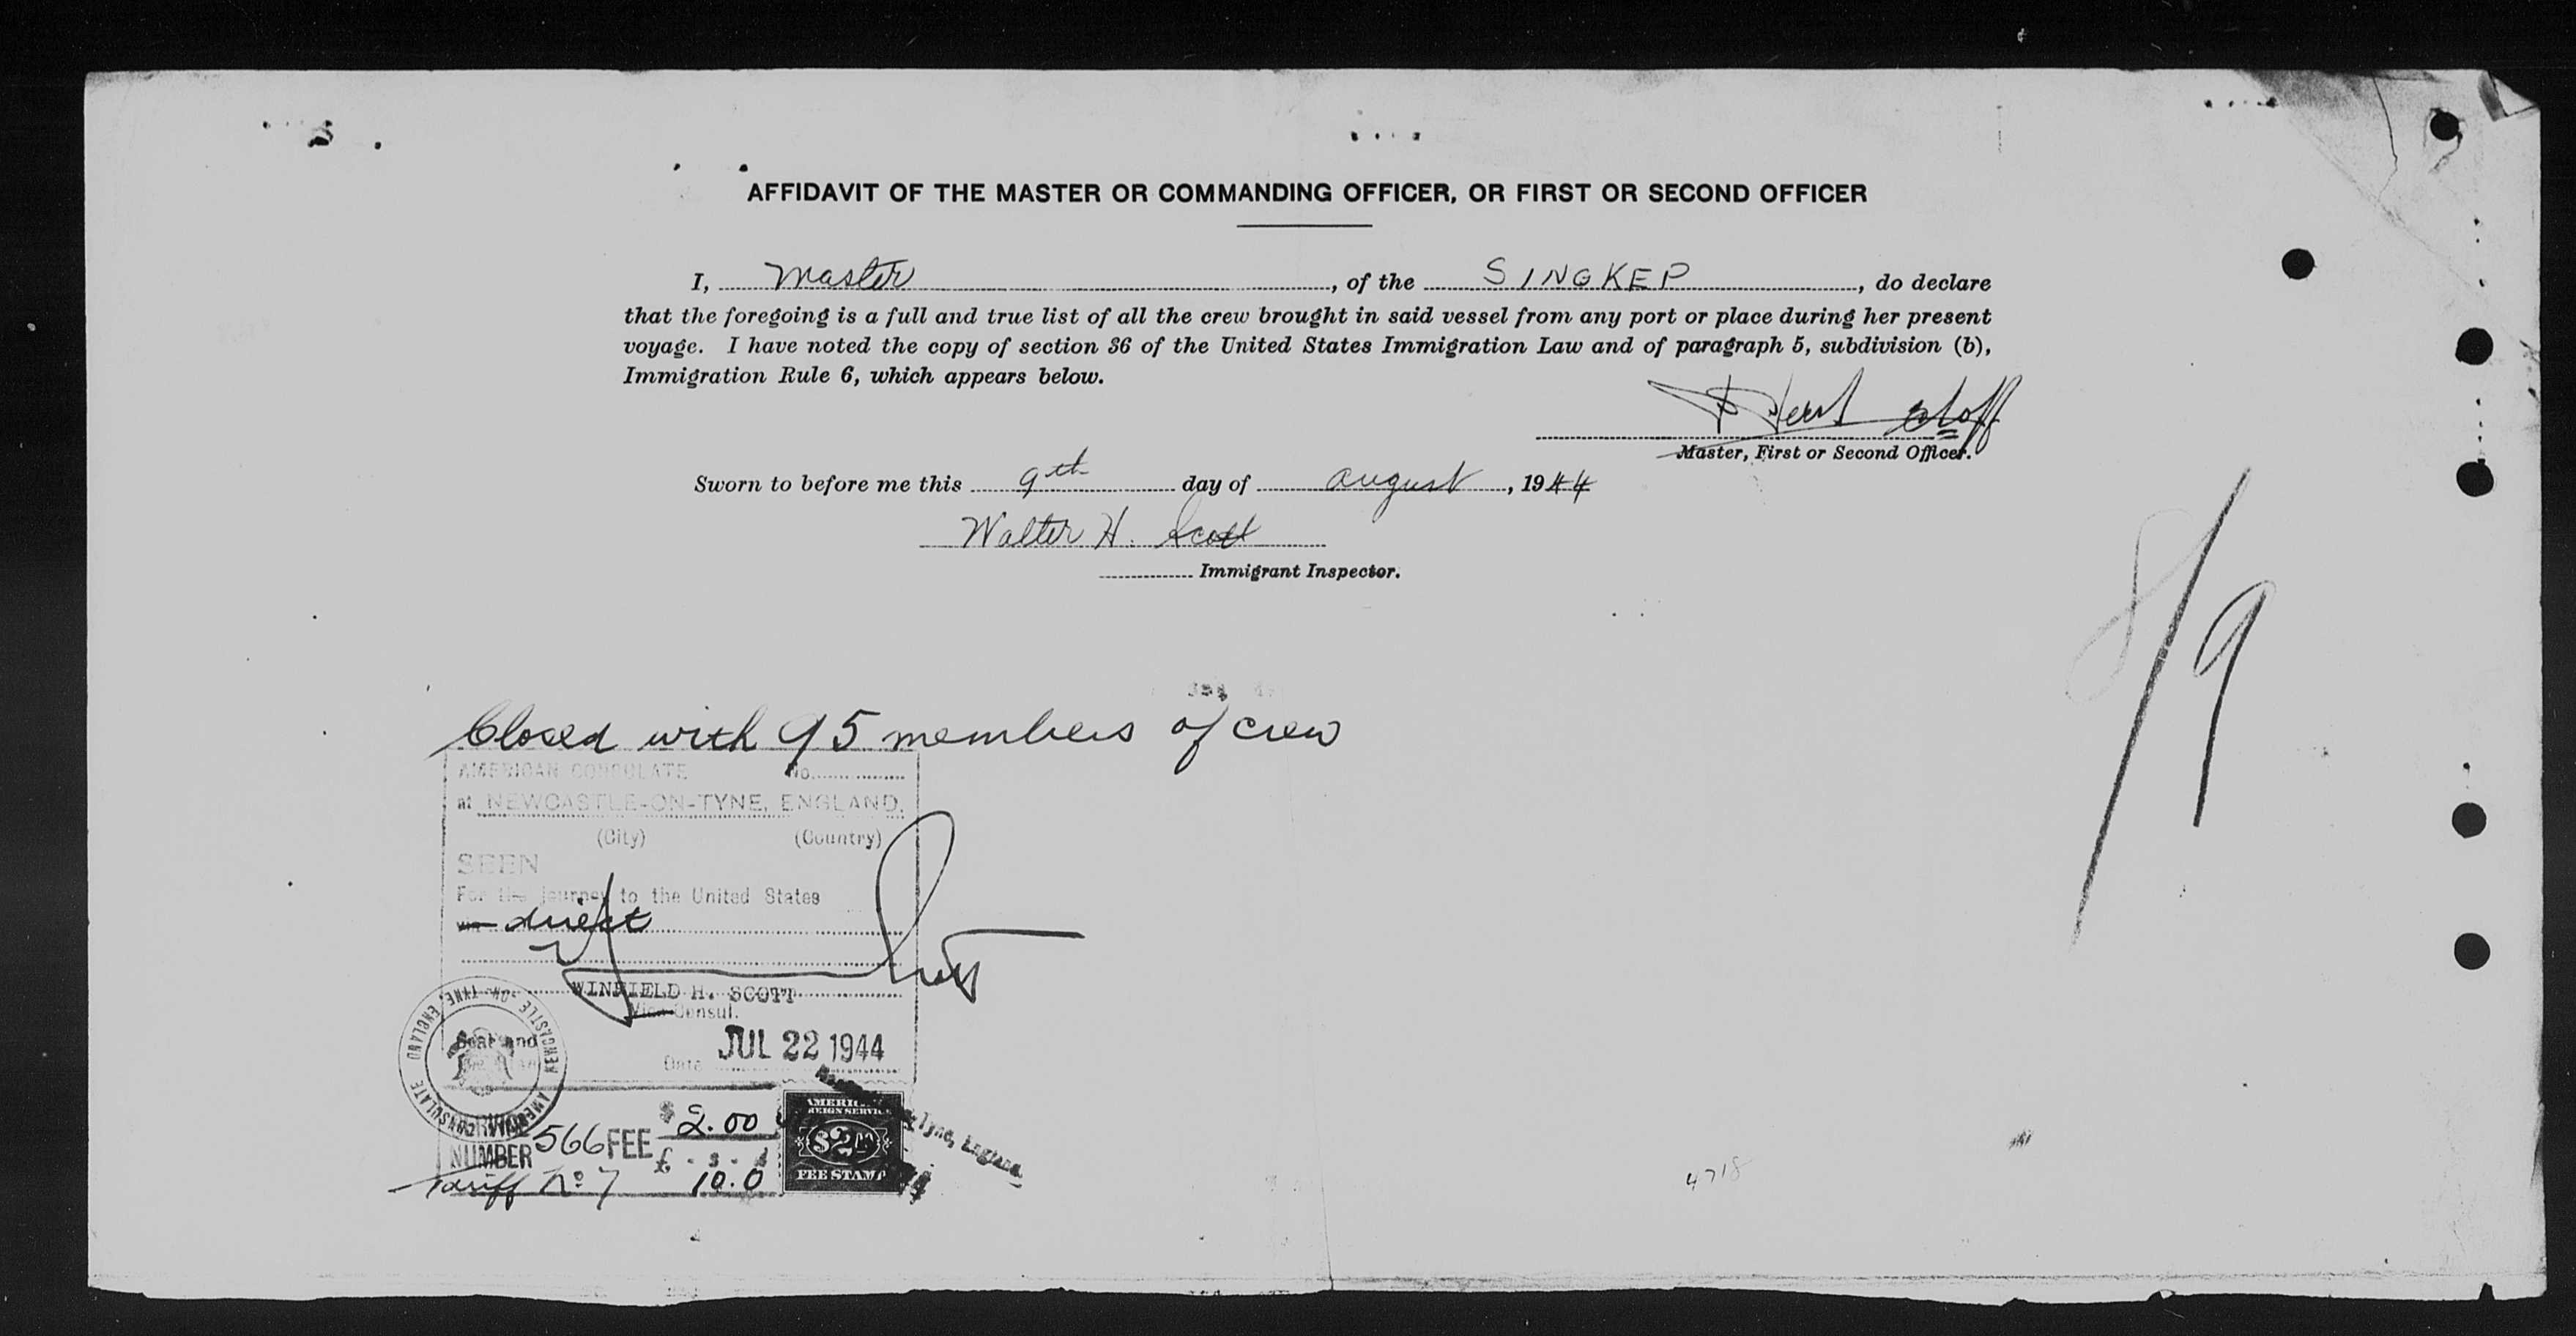 AFFIDAVIT OF THE MASTER OR COMMANDING OFFICER, OR FIRST OR SECOND OFFICER
I, Master, of the SINGKEP, do declare
that the foregoing is a full and true list of all the crew brought in said vessel from any port or place during her present
voyage. I have noted the copy of section 36 of the United States Immigration Law and of paragraph 5, subdivision (b),
Immigration Rule 6, which appears below.
Master, First or Second Officer.
Sworn to before me this 9th day of August, 1944
Walter H. Scott
Immigrant Inspector.
8/9
Closed with 95 members of crew
AMERICAN CONSULATE No.
at NEWCASTLE-ON-TYNE, ENGLAND.
(City) (Country)
SEEN
For the journey to the United States
via direct
WINFIELD H. SCOTT
Vice Consul.
Seal and
Date JUL 22 1944
AMERICAN CONSULATE NEWCASTLE-ON-TYNE, ENGLAND
NUMBER 566 FEE $2.00
£ . s . d
Tariff No 7 10.0
AMERICAN
FOREIGN SERVICE
$2.00
FEE STAMP
Tyne, England
4718